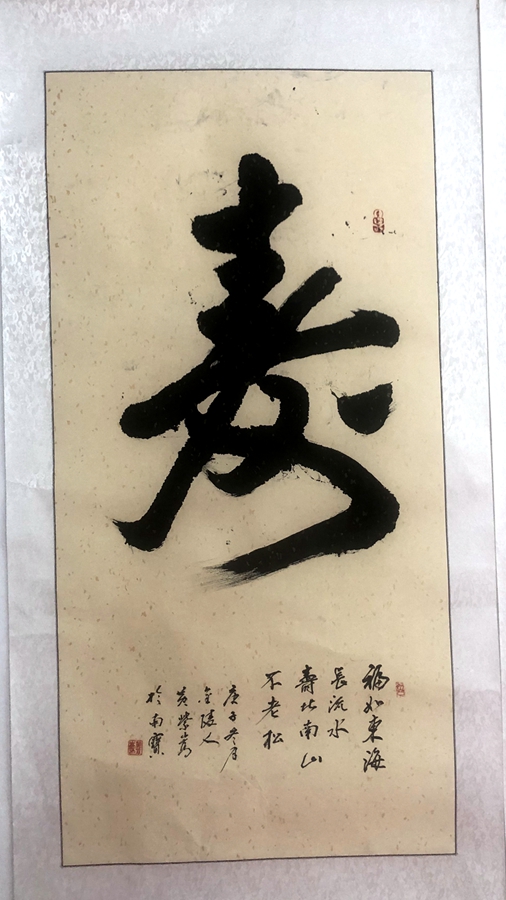 寿
福如東海
長流水
壽比南山
不老松
庚子冬月
金陵人
於南寶